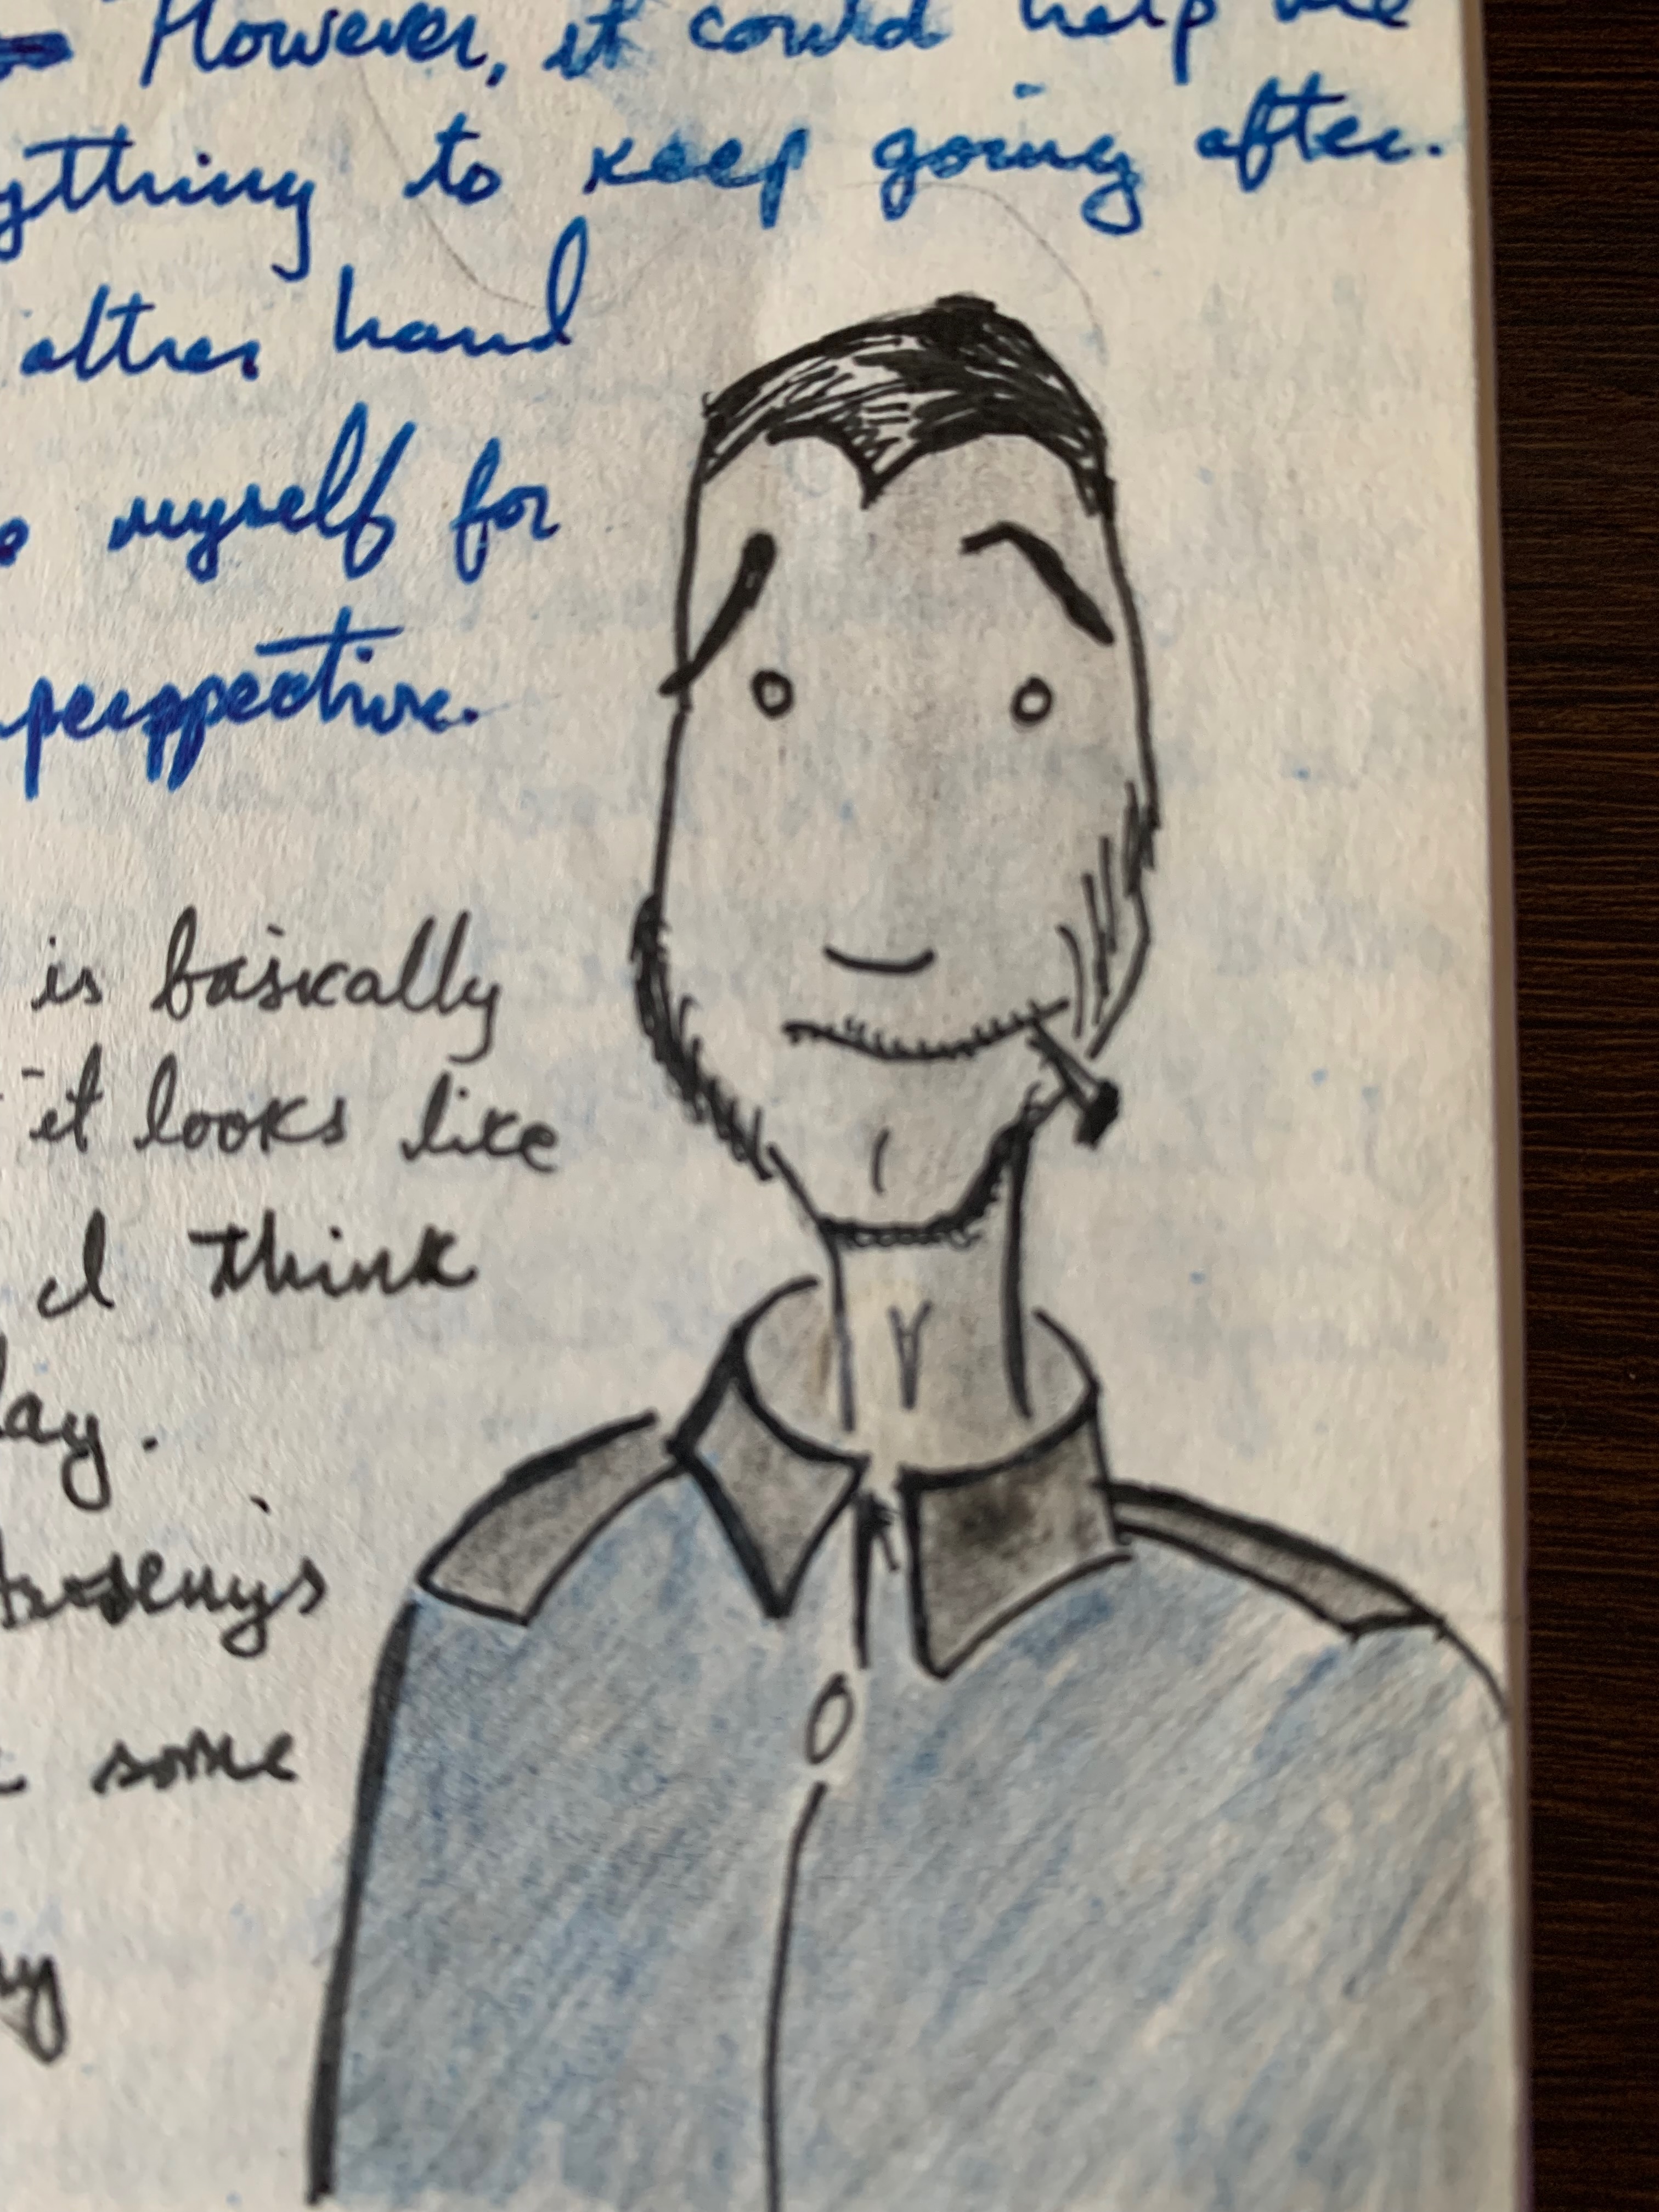 However, it could help me
ything to keep going after.
other hand
myself for
perppective.
is basically
it looks like
I think
lay.
some